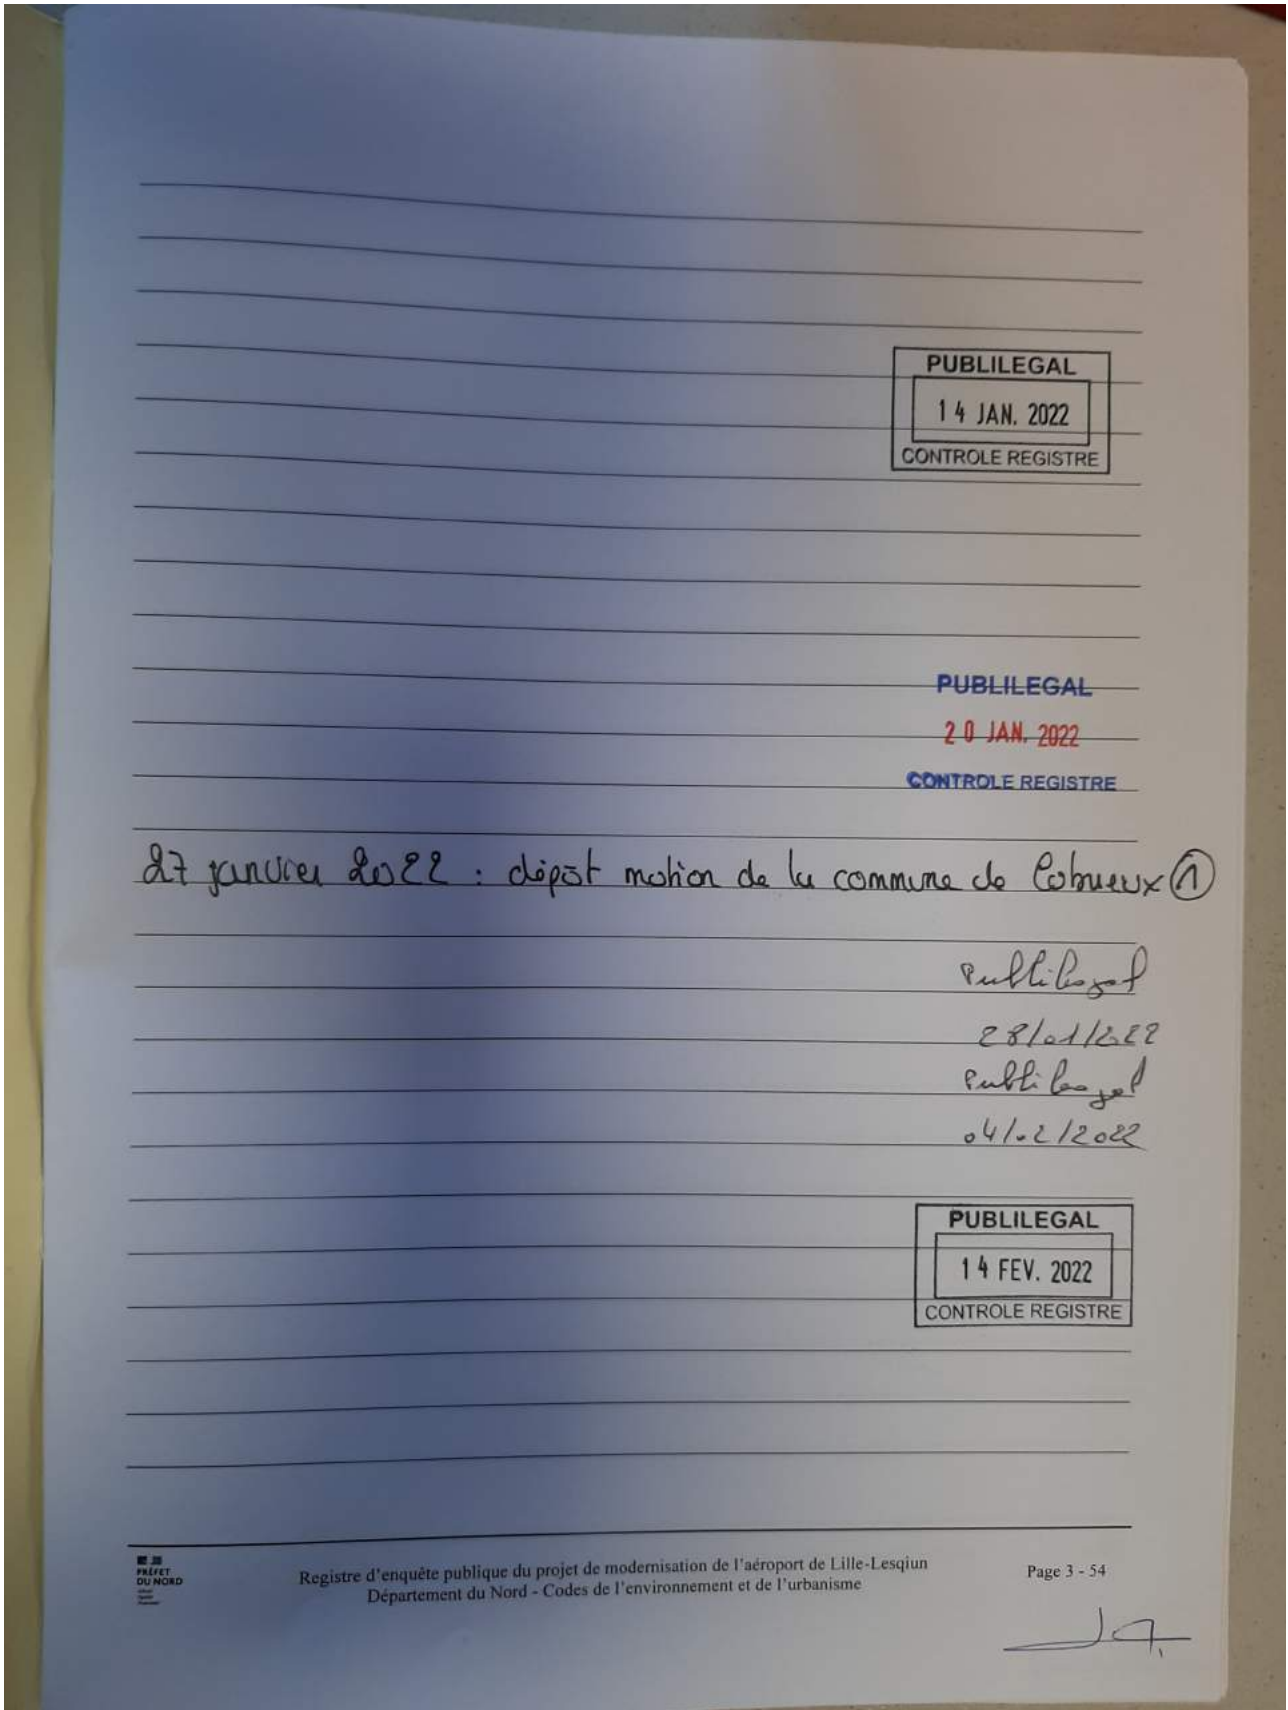 PUBLILEGAL
14 JAN. 2022
CONTROLE REGISTRE
PUBLILEGAL
20 JAN. 2022
CONTROLE REGISTRE
27 janvier 2022 : dépôt motion de la commune de Cobrieux ①
Publilegal
28/01/2022
Publilegal
04/02/2022
PUBLILEGAL
14 FEV. 2022
CONTROLE REGISTRE
PRÉFET
DU NORD
Registre d'enquête publique du projet de modernisation de l'aéroport de Lille-Lesqiun
Département du Nord - Codes de l'environnement et de l'urbanisme
Page 3 - 54